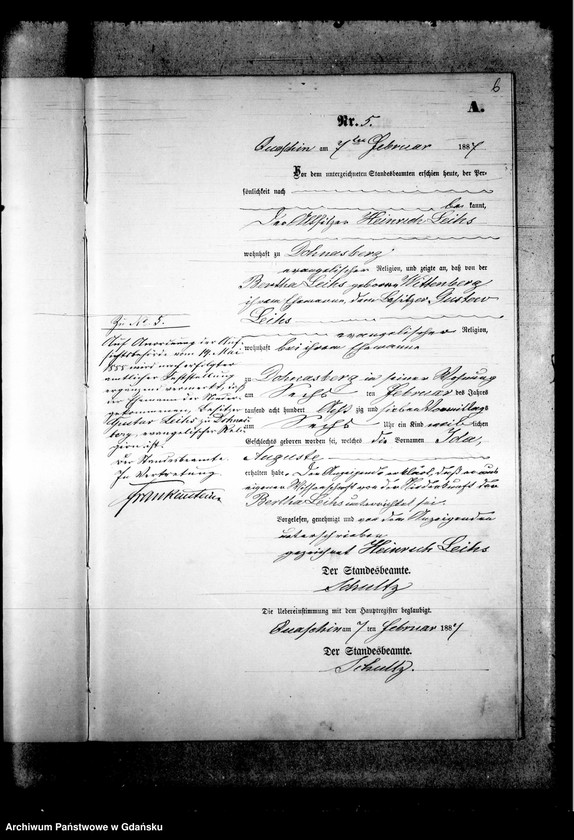 6
A.
Nr. 5.
Quaschin am 7ten Februar 1887
Vor dem unterzeichneten Standesbeamten erschien heute, der Per-
sönlichkeit nach
be kannt,
der Altsitzer Heinrich Leihs
wohnhaft zu Dohnasberg
evangelischer Religion, und zeigte an, daß von der
Bertha Leihs geborene Wittenberg
ihrem Ehemanne, dem Besitzer Gustav
Leihs
evangelischer Religion,
wohnhaft bei ihrem Ehemanne
zu Dohnasberg in seiner Wohnung
am Sechs ten Februar des Jahres
tausend acht hundert Acht zig und sieben Vormittags
um Sechs Uhr ein Kind weib lichen
Geschlechts geboren worden sei, welches die Vornamen Ida,
Auguste
erhalten habe. Der Anzeigende erklärt, daß er aus
eigener Wissenschaft von der Niederkunft der
Bertha Leihs unterrichtet sei.
Vorgelesen, genehmigt und von dem Anzeigenden
unterschrieben
gezeichnet Heinrich Leihs
Der Standesbeamte.
Schultz
Die Uebereinstimmung mit dem Hauptregister beglaubigt.
Quaschin am 7 ten Februar 1887
Der Standesbeamte.
Schultz.
Zu No. 5.
Auf Anordnung der Auf-
sichtsbehörde vom 19. Mai
wird nach erfolgter
amtlicher Feststellung
ergänzend vermerkt, daß
der Ehemann der
Besitzer
Gustav Leihs zu Dohnas-
berg, evangelischer Reli-
gion ist.
Der Standesbeamte
In Vertretung
Archiwum Państwowe w Gdańsku